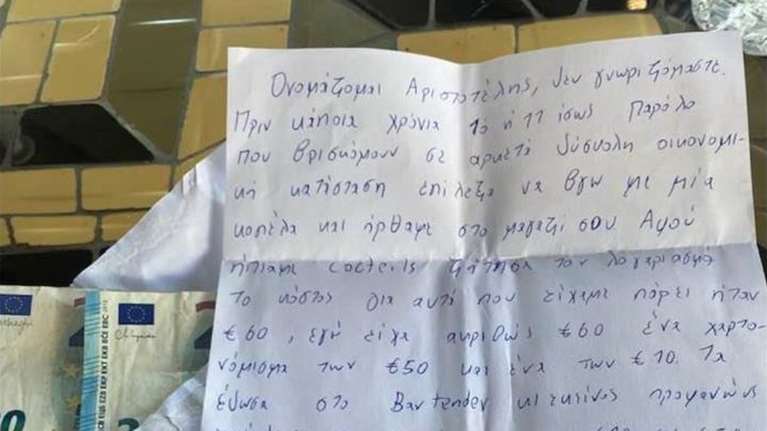 Ονομάζομαι Αριστοτέλης, δεν γνωριζόμαστε.
Πριν κάποια χρόνια 10 ή 11 ίσως παρόλο
που βρισκόμουν σε αρκετά δύσκολη οικονομι-
κή κατάσταση επίλεξα να βγω με μία
κοπέλα και ήρθαμε στο μαγαζί σου Αφού
ήπιαμε cocteils ζήτησα τον λογαριασμό
το κόστος για αυτά που είχαμε πάρει ήταν
€60, εγώ είχα ακριβώς €60 ένα χαρτο-
νόμισμα των €50 και ένα των €10. Τα
έδωσα στο Bartender κι εκείνος προφανώς